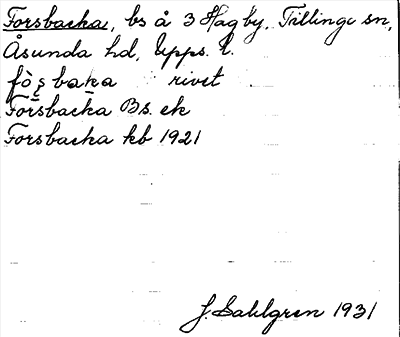 Forsbacka, bs å 3 Hagby, Tillinge sn,
Åsunda hd, Upps. l.
fòṣbaka rivet
Forsbacka Bs. ek
Forsbacka kb 1921
J. Sahlgren 1931